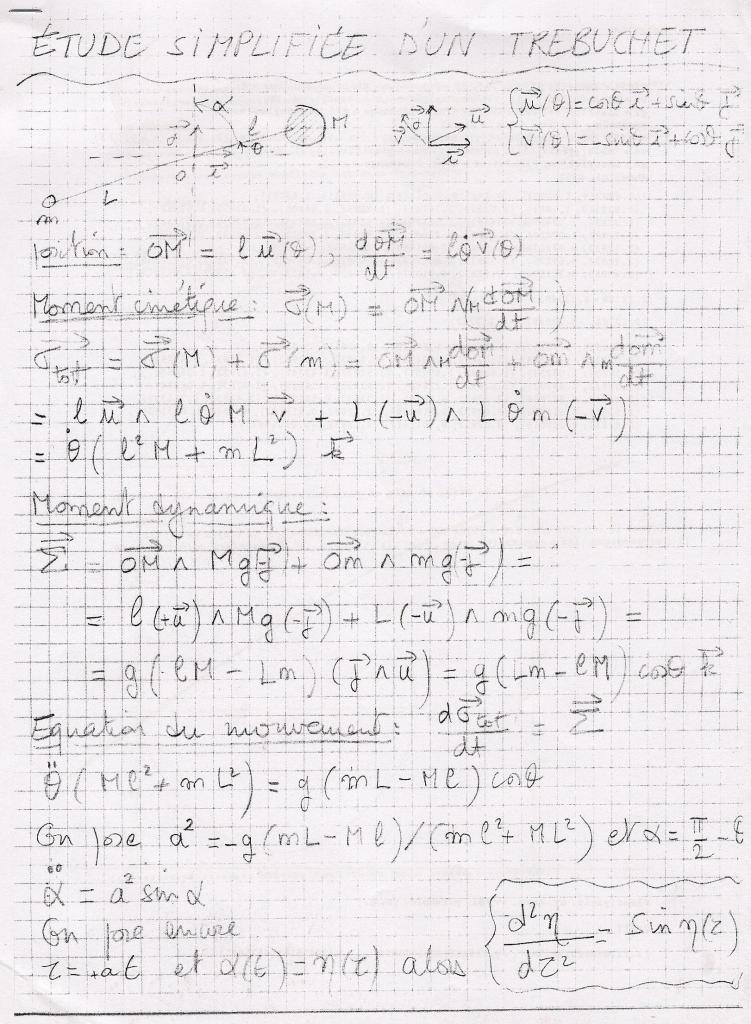 ÉTUDE SIMPLIFIÉE D'UN TREBUCHET
α
l
M
θ
j
O
i
L
m
v j u
i
{ u(θ) = cosθ i + sinθ j
v(θ) = -sinθ i + cosθ j
position : OM = l u(θ), dOM/dt = l θ̇ v(θ)
Moment cinétique : σ(M) = OM ∧ M (dOM/dt)
σ_tot = σ(M) + σ(m) = OM ∧ M dOM/dt + Om ∧ m dOm/dt
= l u ∧ l θ̇ M v + L(-u) ∧ L θ̇ m (-v)
= θ̇ ( l² M + m L² ) k
Moment dynamique :
Σ = OM ∧ M g(-j) + Om ∧ m g(-j) =
= l (+u) ∧ M g (-j) + L (-u) ∧ m g (-j) =
= g ( l M - L m ) ( j ∧ u ) = g ( L m - l M ) cosθ k
Equation du mouvement : dσ_tot/dt = Σ
θ̈ ( M l² + m L² ) = g ( m L - M l ) cosθ
On pose a² = -g (m L - M l) / (m l² + M L²) et α = π/2 - θ
α̈ = a² sin α
On pose encore
τ = +at et α(t) = η(τ) alors { d²η/dτ² = sin η(τ)